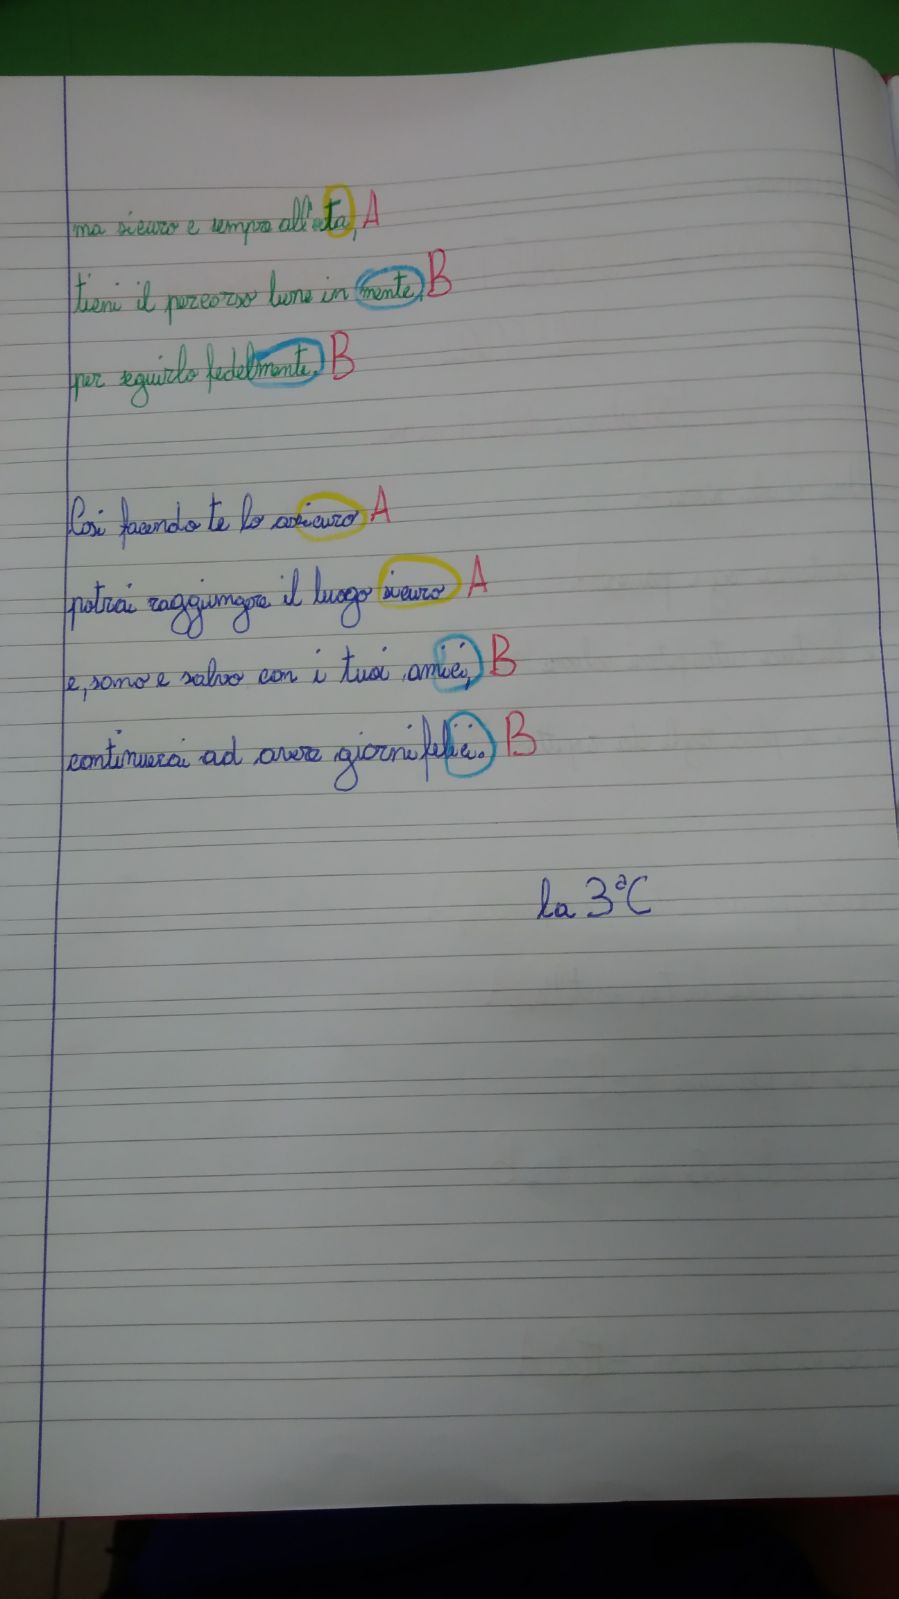 ma sicuro e sempre all'erta, A
tieni il percorso bene in mente, B
per seguirlo fedelmente. B
Così facendo te lo assicuro A
potrai raggiungere il luogo sicuro A
e, sano e salvo con i tuoi amici, B
continuerai ad avere giorni felici. B
la 3ªC